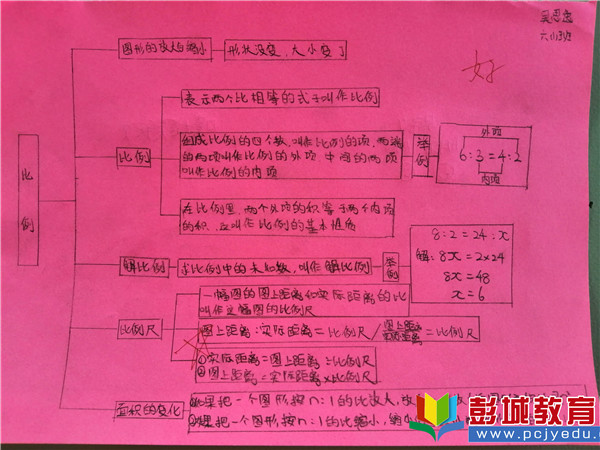 六(1)班
好
图形的放大与缩小
形状没变,大小变了
表示两个比相等的式子叫作比例
组成比例的四个数,叫作比例的项,两端
的两项叫作比例的外项 中间的两项
叫作比例的内项
举例
外项
6:3=4:2
内项
比例
比例
在比例里,两个外项的积等于两个内项
的积,这叫作比例的基本性质
解比例
求比例中的未知数,叫作解比例
举例
8:2=24:x
解:8x=2×24
8x=48
x=6
一幅图的图上距离和实际距离的比
叫作这幅图的比例尺
比例尺
图上距离:实际距离=比例尺/图上距离/实际距离=比例尺
①实际距离=图上距离÷比例尺
②图上距离=实际距离×比例尺
面积的变化
如果把一个图形,按n:1的比放大,
②如果把一个图形,按n:1的比缩小,
彭城教育
www.pcjyedu.com